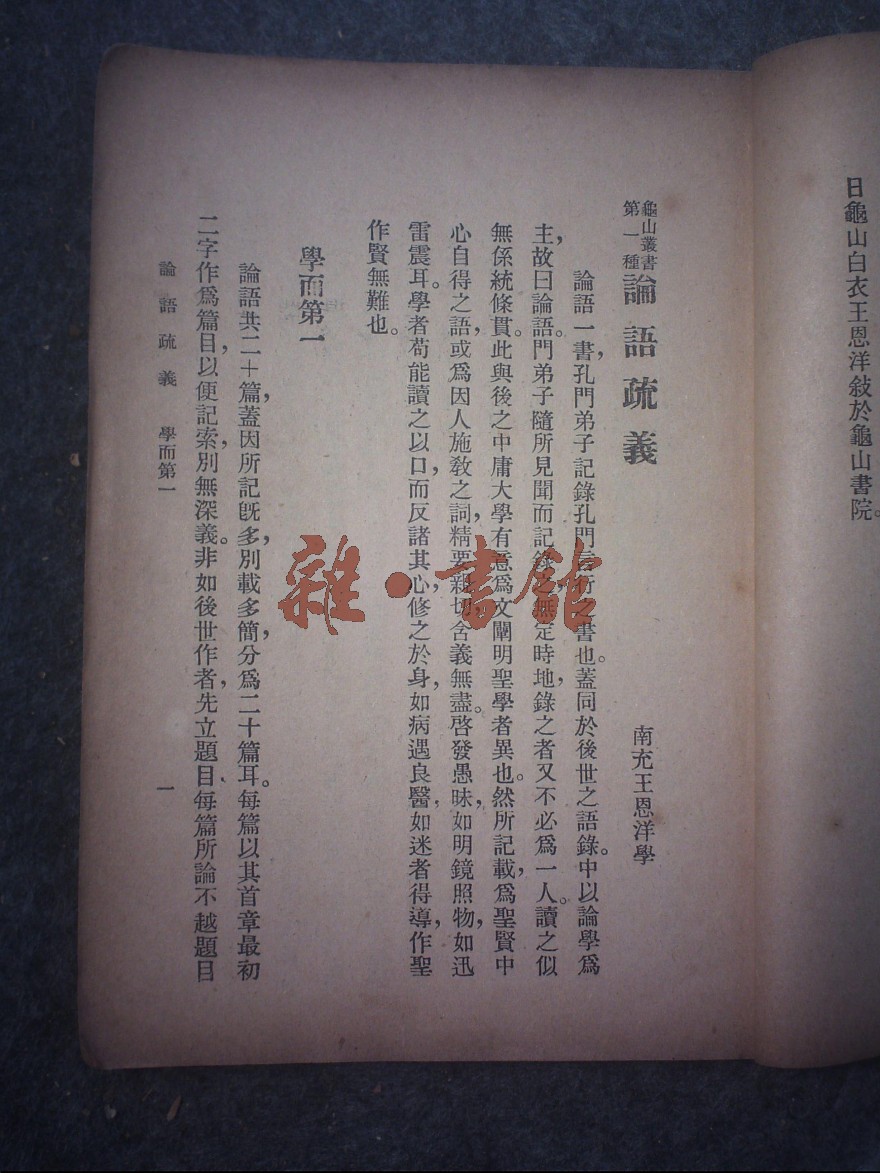 日龜山白衣王恩洋敍於龜山書院。
龜山叢書
第一種
論語疏義
南充王恩洋學
論語一書，孔門弟子記錄孔門言行之書也。蓋同於後世之語錄。中以論學爲
主，故曰論語。門弟子隨所見聞而記錄之，無定時地，錄之者又不必爲一人。讀之似
無係統條貫。此與後之中庸大學有意爲文闡明聖學者異也。然所記載，爲聖賢中
心自得之語，或爲因人施敎之詞，精要親切，含義無盡。啓發愚昧，如明鏡照物，如迅
雷震耳。學者苟能讀之以口，而反諸其心，修之於身，如病遇良醫，如迷者得導，作聖
作賢無難也。
學而第一
論語共二十篇，蓋因所記旣多，別載多簡，分爲二十篇耳。每篇以其首章最初
二字作爲篇目，以便記索，別無深義。非如後世作者，先立題目，每篇所論不越題目
論語疏義 學而第一
一
雜·書館